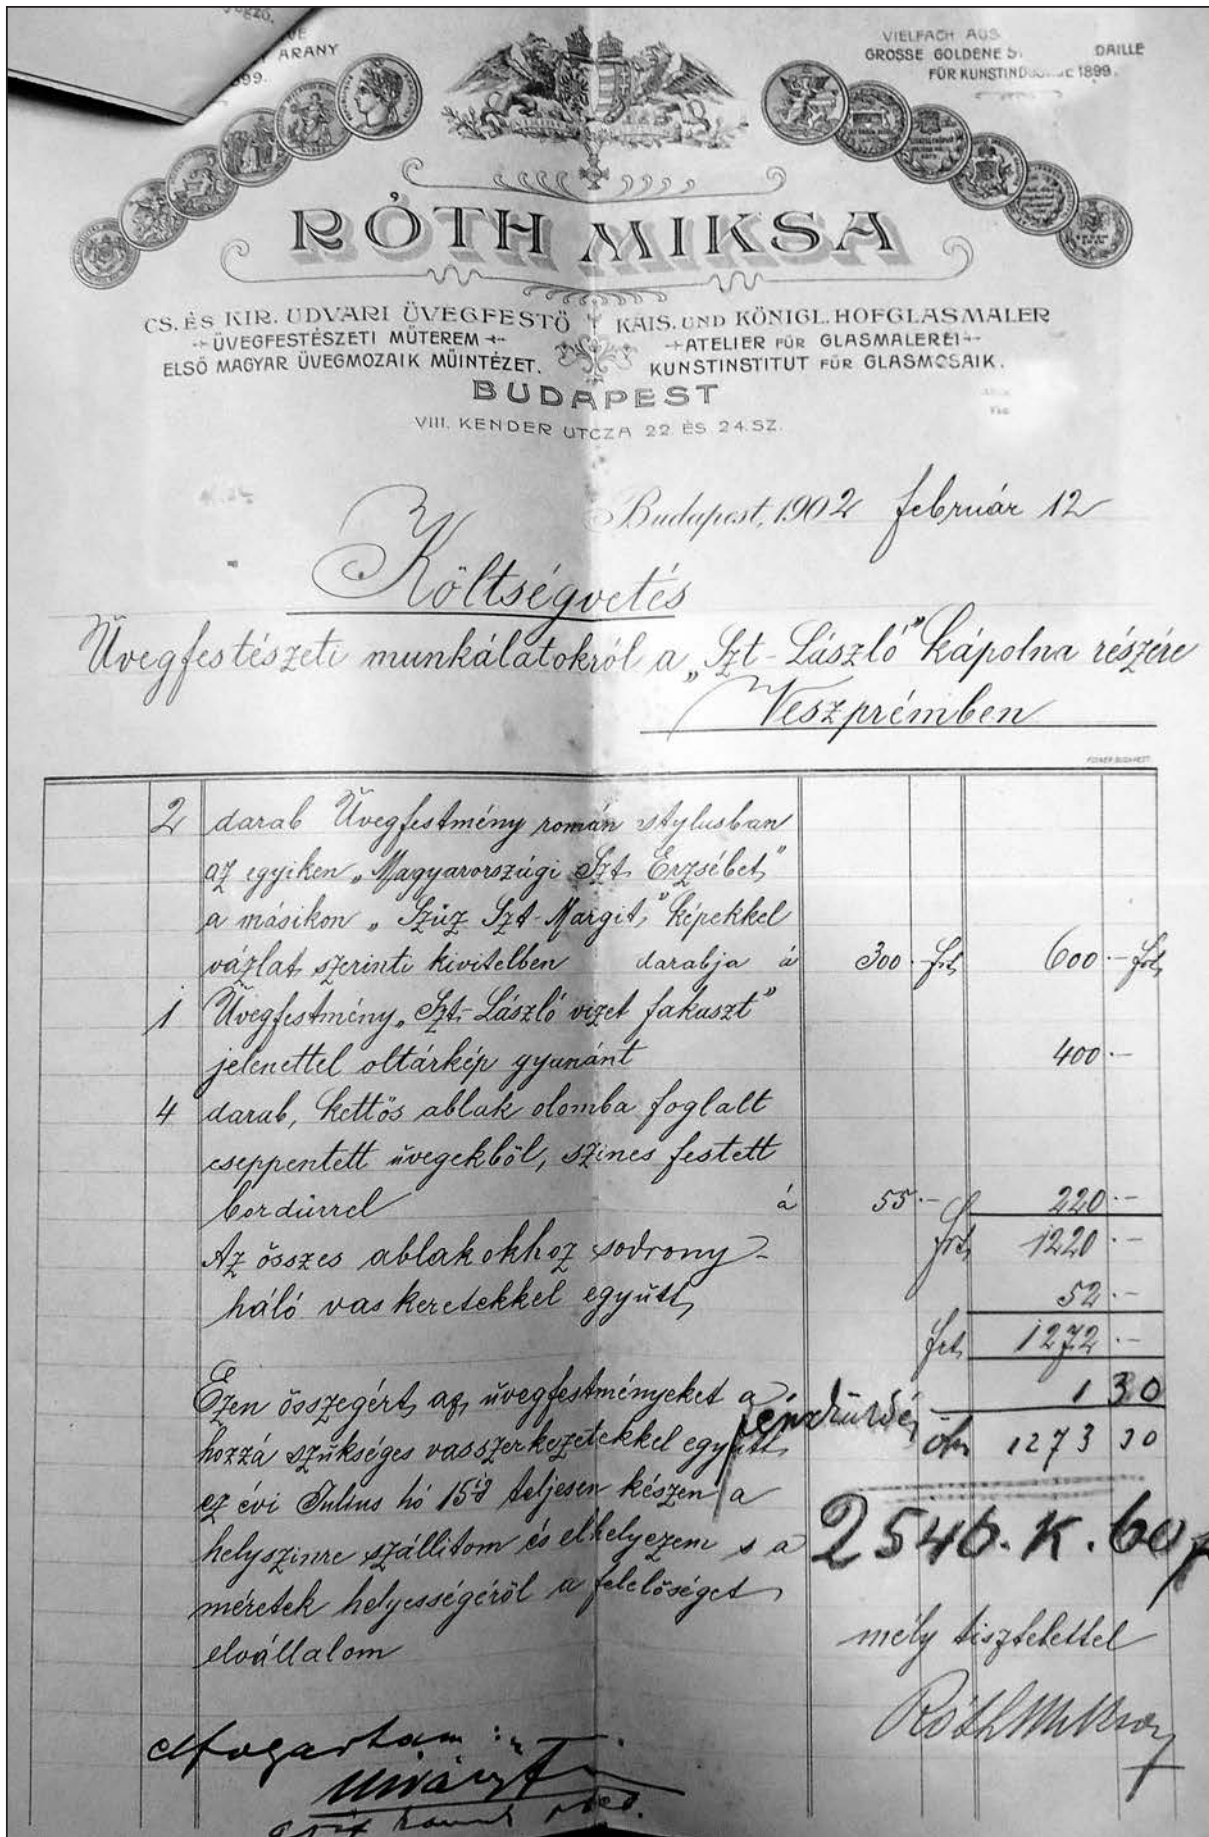 ARANY
VIELFACH AUS
GROSSE GOLDENE S DAILLE
FÜR KUNSTIND 1899.
RÓTH MIKSA
CS. ÉS KIR. UDVARI ÜVEGFESTŐ
ÜVEGFESTÉSZETI MŰTEREM
ELSŐ MAGYAR ÜVEGMOZAIK MŰINTÉZET.
KAIS. UND KÖNIGL. HOFGLASMALER
ATELIER FÜR GLASMALEREI
KUNSTINSTITUT FÜR GLASMOSAIK.
BUDAPEST
VIII. KENDER UTCZA 22 ÉS 24. SZ.
Budapest, 1902 február 12
Költségvetés
Üvegfestészeti munkálatokról a „Szt-László" kápolna részére
Veszprémben
2 darab Üvegfestmény román stylusban
az egyiken „Magyarországi Szt. Erzsébet"
a másikon „Szűz Szt-Margit" képekkel
vázlat szerinti kivitelben darabja á 300.- frt 600.- frt
1 Üvegfestmény „Szt-László vizet fakaszt"
jelenettel oltárkép gyanánt 400.-
4 darab, kettős ablak olomba foglalt
cseppentett üvegekből, szines festett
bordürrel á 55.- 220.-
frt 1220.-
Az összes ablakokhoz sodrony-
háló vas keretekkel együtt 52.-
frt 1272.-
1 30
1273 30
Ezen összegért az üvegfestményeket a
hozzá szükséges vasszerkezetekkel együtt
ez évi Julius hó 15ig teljesen készen a
helyszinre szállitom és elhelyezem s a
méretek helyességéről a felelőséget
elvállalom
2546.K.60f
mély tisztelettel
Róth Miksa
Elfogadtam: